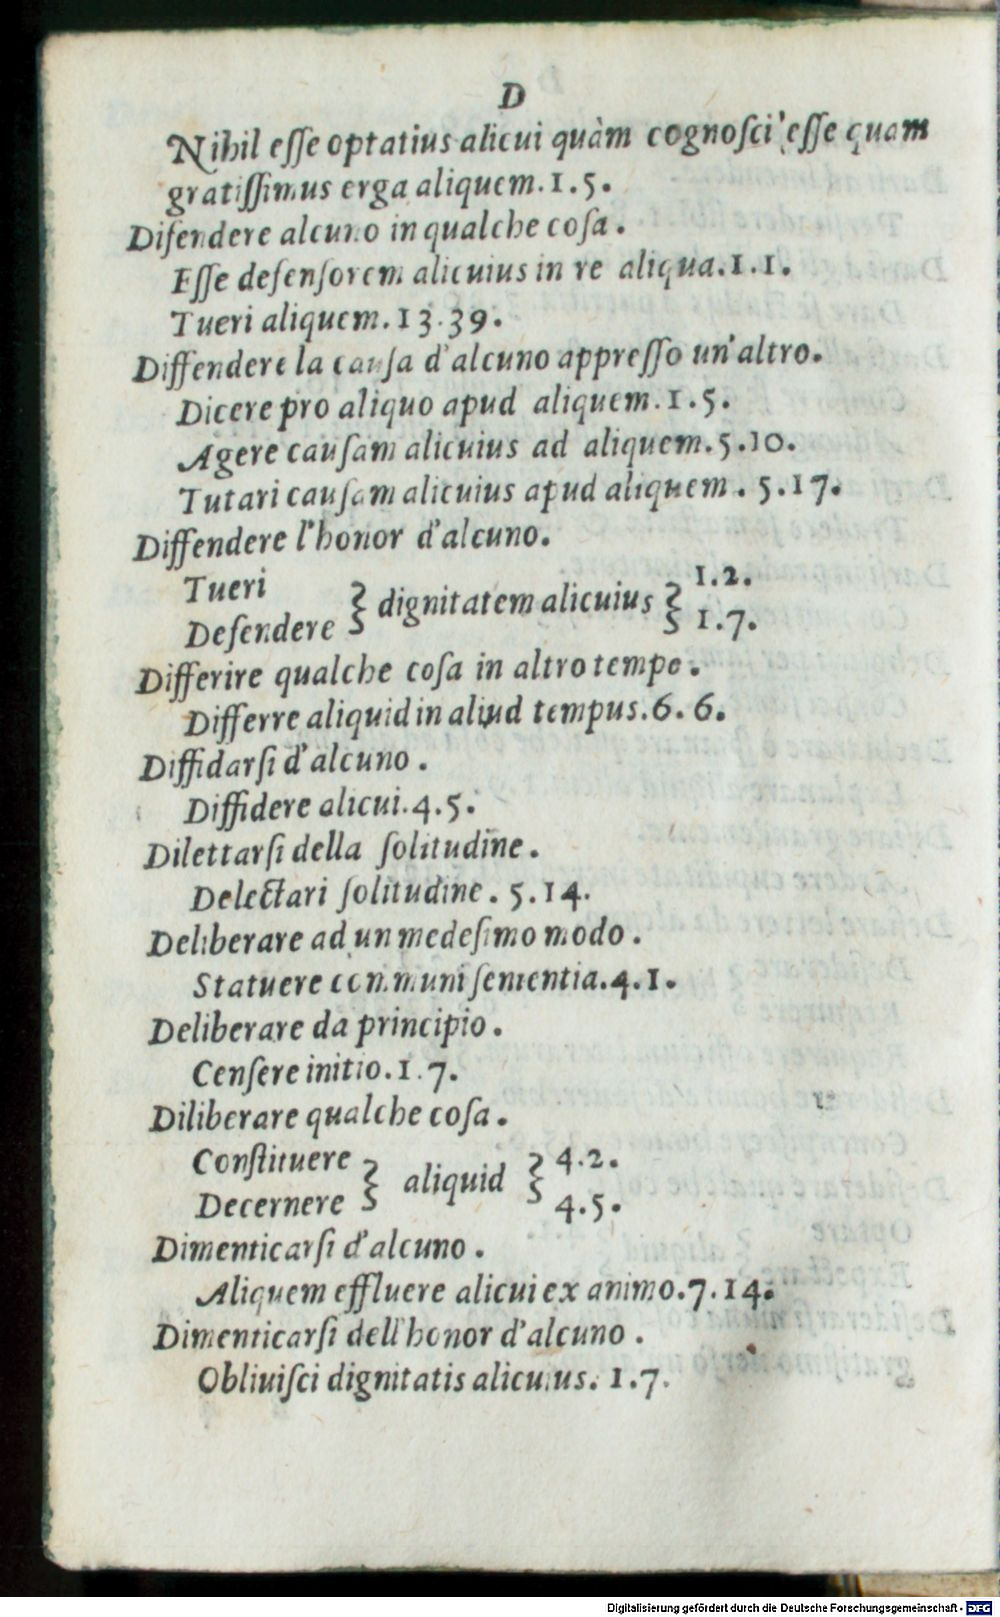 D
Nihil eſſe optatius alicui quàm cognoſci eſſe quam
gratiſſimus erga aliquem.1.5.
Difendere alcuno in qualche coſa.
Eſſe defenſorem alicuius in re aliqua.1.1.
Tueri aliquem.13.39.
Diffendere la cauſa d'alcuno appreſſo un'altro.
Dicere pro aliquo apud aliquem.1.5.
Agere cauſam alicuius ad aliquem.5.10.
Tutari cauſam alicuius apud aliquem. 5.17.
Diffendere l'honor d'alcuno.
Tueri } dignitatem alicuius } 1.2.
Defendere 1.7.
Differire qualche coſa in altro tempo.
Differre aliquid in aliud tempus.6.6.
Diffidarſi d'alcuno.
Diffidere alicui.4.5.
Dilettarſi della ſolitudine.
Delectari ſolitudine. 5.14.
Deliberare ad un medeſimo modo.
Statuere communi ſententia.4.1.
Deliberare da principio.
Cenſere initio.1.7.
Diliberare qualche coſa.
Conſtituere } aliquid } 4.2.
Decernere 4.5.
Dimenticarſi d'alcuno.
Aliquem effluere alicui ex animo.7.14.
Dimenticarſi dell'honor d'alcuno.
Obliuiſci dignitatis alicuius. 1.7.
Digitalisierung gefördert durch die Deutsche Forschungsgemeinschaft - DFG